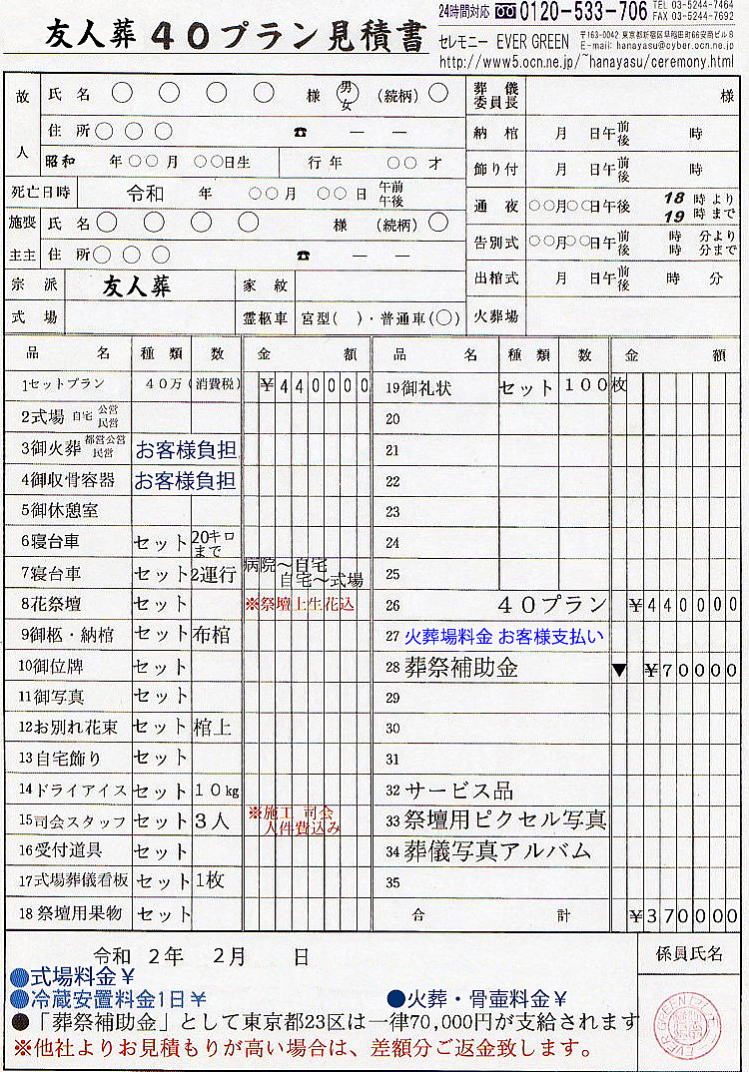 友人葬 40プラン見積書
24時間対応 0120-533-706 TEL 03-5244-7464 FAX 03-5244-7692
セレモニー EVER GREEN 〒163-0042 東京都新宿区早稲田町66安商ビル8 E-mail: hanayasu@cyber.ocn.ne.jp
http://www5.ocn.ne.jp/~hanayasu/ceremony.html
故人 氏名 〇 〇 〇 〇 様 男 女 (続柄) 〇
住所 〇 〇 〇 ☎ — —
昭和 年 〇〇 月 〇〇 日生 行年 〇〇 才
死亡日時 令和 年 〇〇 月 〇〇 日 午前 午後
施主 喪主 氏名 〇 〇 〇 〇 様 (続柄) 〇
住所 〇 〇 〇 ☎ — —
宗派 友人葬 家紋
式場 霊柩車 宮型( )・普通車(〇)
葬儀委員長 様
納棺 月 日 午前 後 時
飾り付 月 日 午前 後 時
通夜 〇〇月〇〇日午後 18時より 19時まで
告別式 〇〇月〇〇日午前 後 時 分より 時 分まで
出棺式 月 日 午前 後 時 分
火葬場
品名 種類 数 金額
1セットプラン 40万 (消費税) ¥440000
2式場 自宅 公営 民営
3御火葬 都営公営 民営 お客様負担
4御収骨容器 お客様負担
5御休憩室
6寝台車 セット 20キロまで
7寝台車 セット 2運行 病院～自宅 自宅～式場
8花祭壇 セット ※祭壇上生花込
9御柩・納棺 セット 布棺
10御位牌 セット
11御写真 セット
12お別れ花束 セット 棺上
13自宅飾り セット
14ドライアイス セット 10kg
15司会スタッフ セット 3人 ※施工 司会 人件費込み
16受付道具 セット
17式場葬儀看板 セット 1枚
18祭壇用果物 セット
品名 種類 数 金額
19御礼状 セット 100枚
20
21
22
23
24
25
26 40プラン ¥440000
27 火葬場料金 お客様支払い
28 葬祭補助金 ▼ ¥70000
29
30
31
32 サービス品
33 祭壇用ピクセル写真
34 葬儀写真アルバム
35
合計 ¥370000
令和 2年 2月 日
係員氏名
●式場料金¥
●冷蔵安置料金1日¥ ●火葬・骨壷料金¥
●「葬祭補助金」として東京都23区は一律70,000円が支給されます
※他社よりお見積もりが高い場合は、差額分ご返金致します。